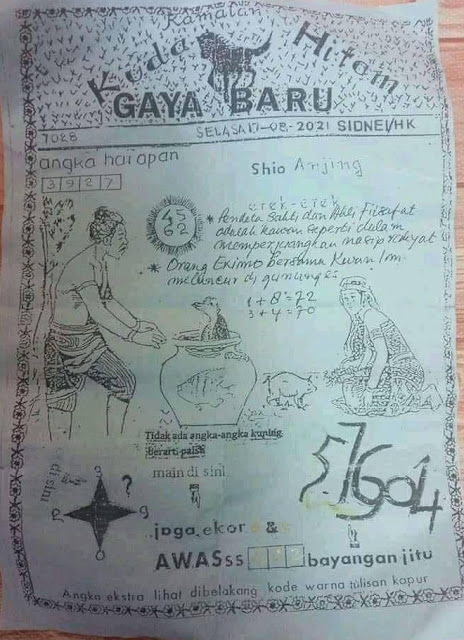 Ramalan
Kuda Hitam
GAYA BARU
7028
SELASA 17-08-2021 SIDNEI/HK
angka harapan
Shio Anjing
3927
erek-erek
45
62
* Pendeta Sakti dan Ahli Filsafat
adalah kawan seperti dulam
memperjuangkan nasip rakyat
* Orang Eximo bersama Kwan Im
meluncur di gunung es
1+8=22
3+4=70
Tidak ada angka-angka kuning
berarti palsu
main di sini
disini
3
?
2 9
0
jaga ekor &
AWASss bayangan jitu
Angka ekstra lihat dibelakang kode warna tulisan kapur